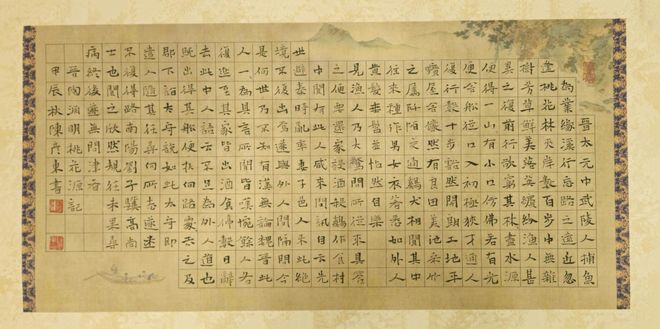 晉太元中武陵人捕魚
為業緣溪行忘路之遠近忽
逢桃花林夾岸數百步中無雜
樹芳草鮮美落英繽紛漁人甚
異之復前行欲窮其林盡水源
便得一山有小口仿佛若有光
便舍船從口入初極狹才通人
復行數十步豁然開朗土地平
曠屋舍儼然有良田美池桑竹
之屬阡陌交通雞犬相聞其中
往來種作男女衣著悉如外人
黃髮垂髫並怡然自樂
見漁人乃大驚問所從來具答
之便要還家設酒殺雞作食村
中聞有此人咸來問訊自云先
世避秦時亂率妻子邑人來此絕
境不復出焉遂與外人間隔問今
是何世乃不知有漢無論魏晉此
人一一為具言所聞皆嘆惋餘人各
復延至其家皆出酒食停數日辭
去此中人語云不足為外人道也
既出得其船便扶向路處處志之及
郡下詣太守說如此太守即
遣人隨其往尋向所志遂迷
不復得路南陽劉子驥高尚
士也聞之欣然規往未果尋
病終後遂無問津者
晉陶淵明桃花源記
甲辰秋陳東書